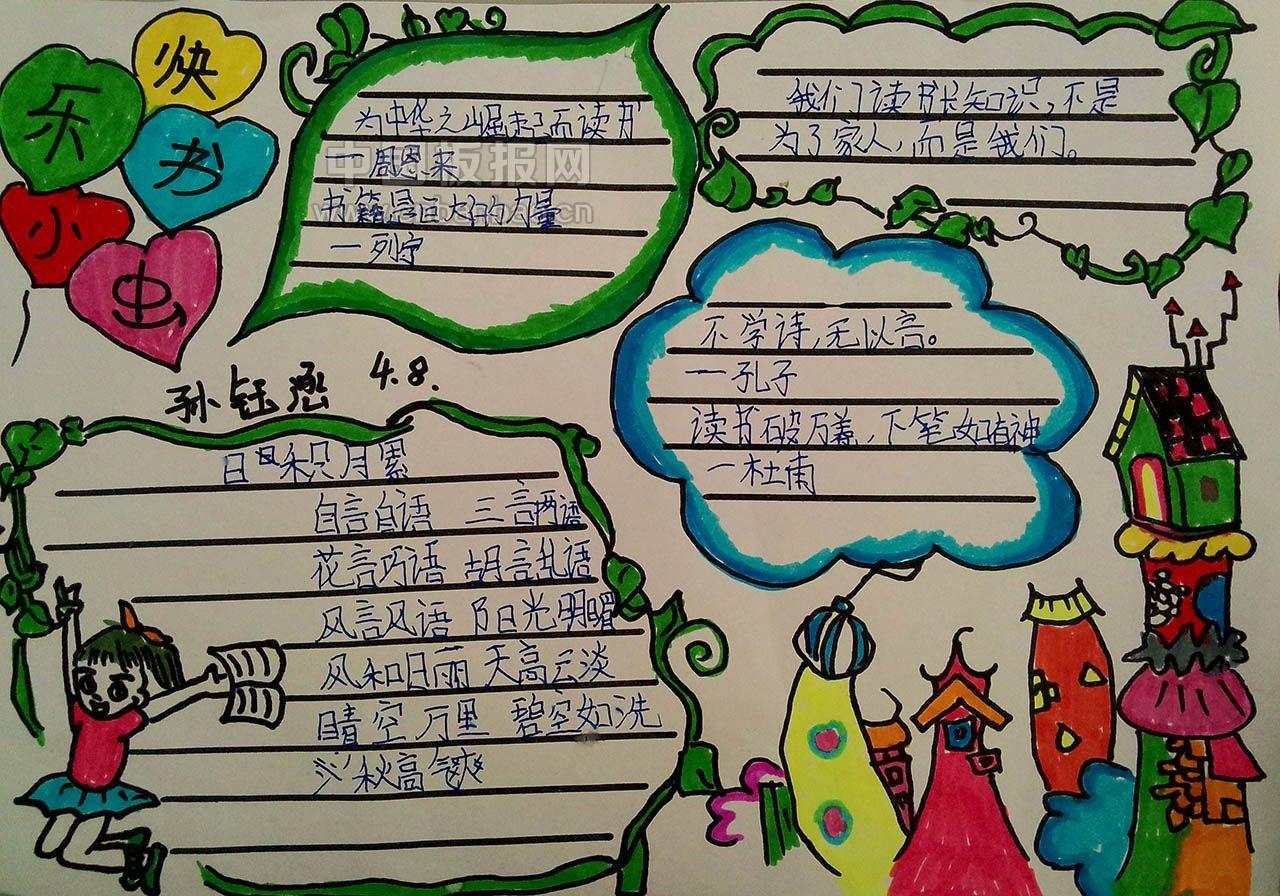 快
乐书
小虫
为中华之崛起而读书
一周恩来
书籍是巨大的力量
一列宁
我们读书长知识,不是
为了家人,而是我们。
不学诗,无以言。
一孔子
读书破万卷,下笔如有神
一杜甫
孙钰涵 4.8.
日积月累
自言自语 三言两语
花言巧语 胡言乱语
风言风语 阳光明媚
风和日丽 天高云淡
晴空万里 碧空如洗
秋高气爽
中国板报网